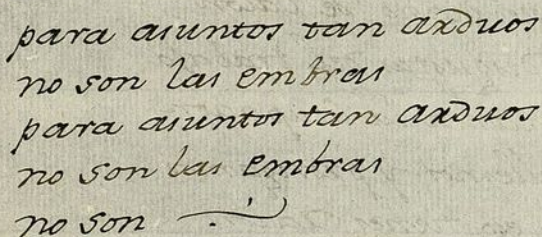 para asuntos tan arduos
no son las embras
para asuntos tan arduos
no son las embras
no son